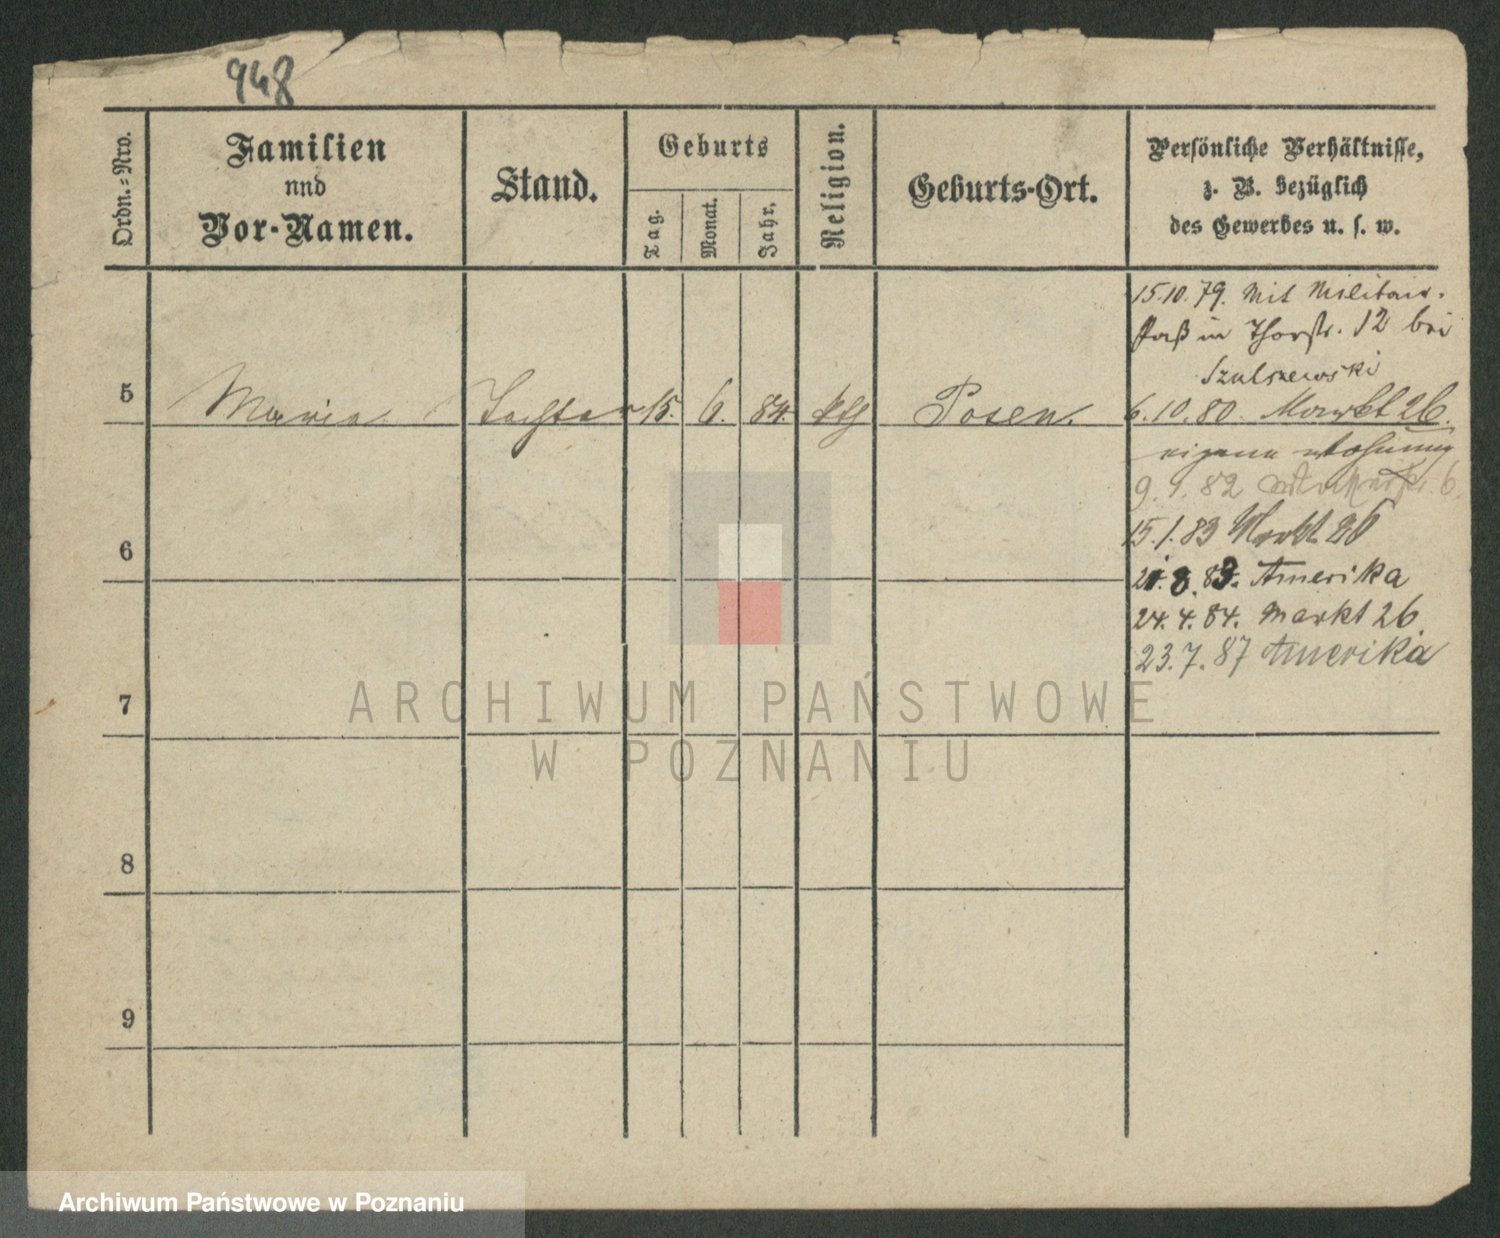 948
Ordn.-Nro.
Familien
nnd
Vor-Namen.
Stand.
Geburts
Tag.
Monat.
Jahr.
Religion.
Geburts-Ort.
Persönliche Verhältnisse,
z. B. bezüglich
des Gewerbes u. s. w.
15.10.79. Mit Militair-
Paß in Thorstr. 12 bei
Szulszewski
5 Maria Tochter 15. 6. 84. kth Posen.
6.10.80. Markt 26.
eigene Wohnung
9. 1. 82
15.1.83 Markt 26
6
21.8.83. Amerika
24.4.84. Markt 26
23.7.87 Amerika
7
8
9
ARCHIWUM PAŃSTWOWE
W POZNANIU
Archiwum Państwowe w Poznaniu